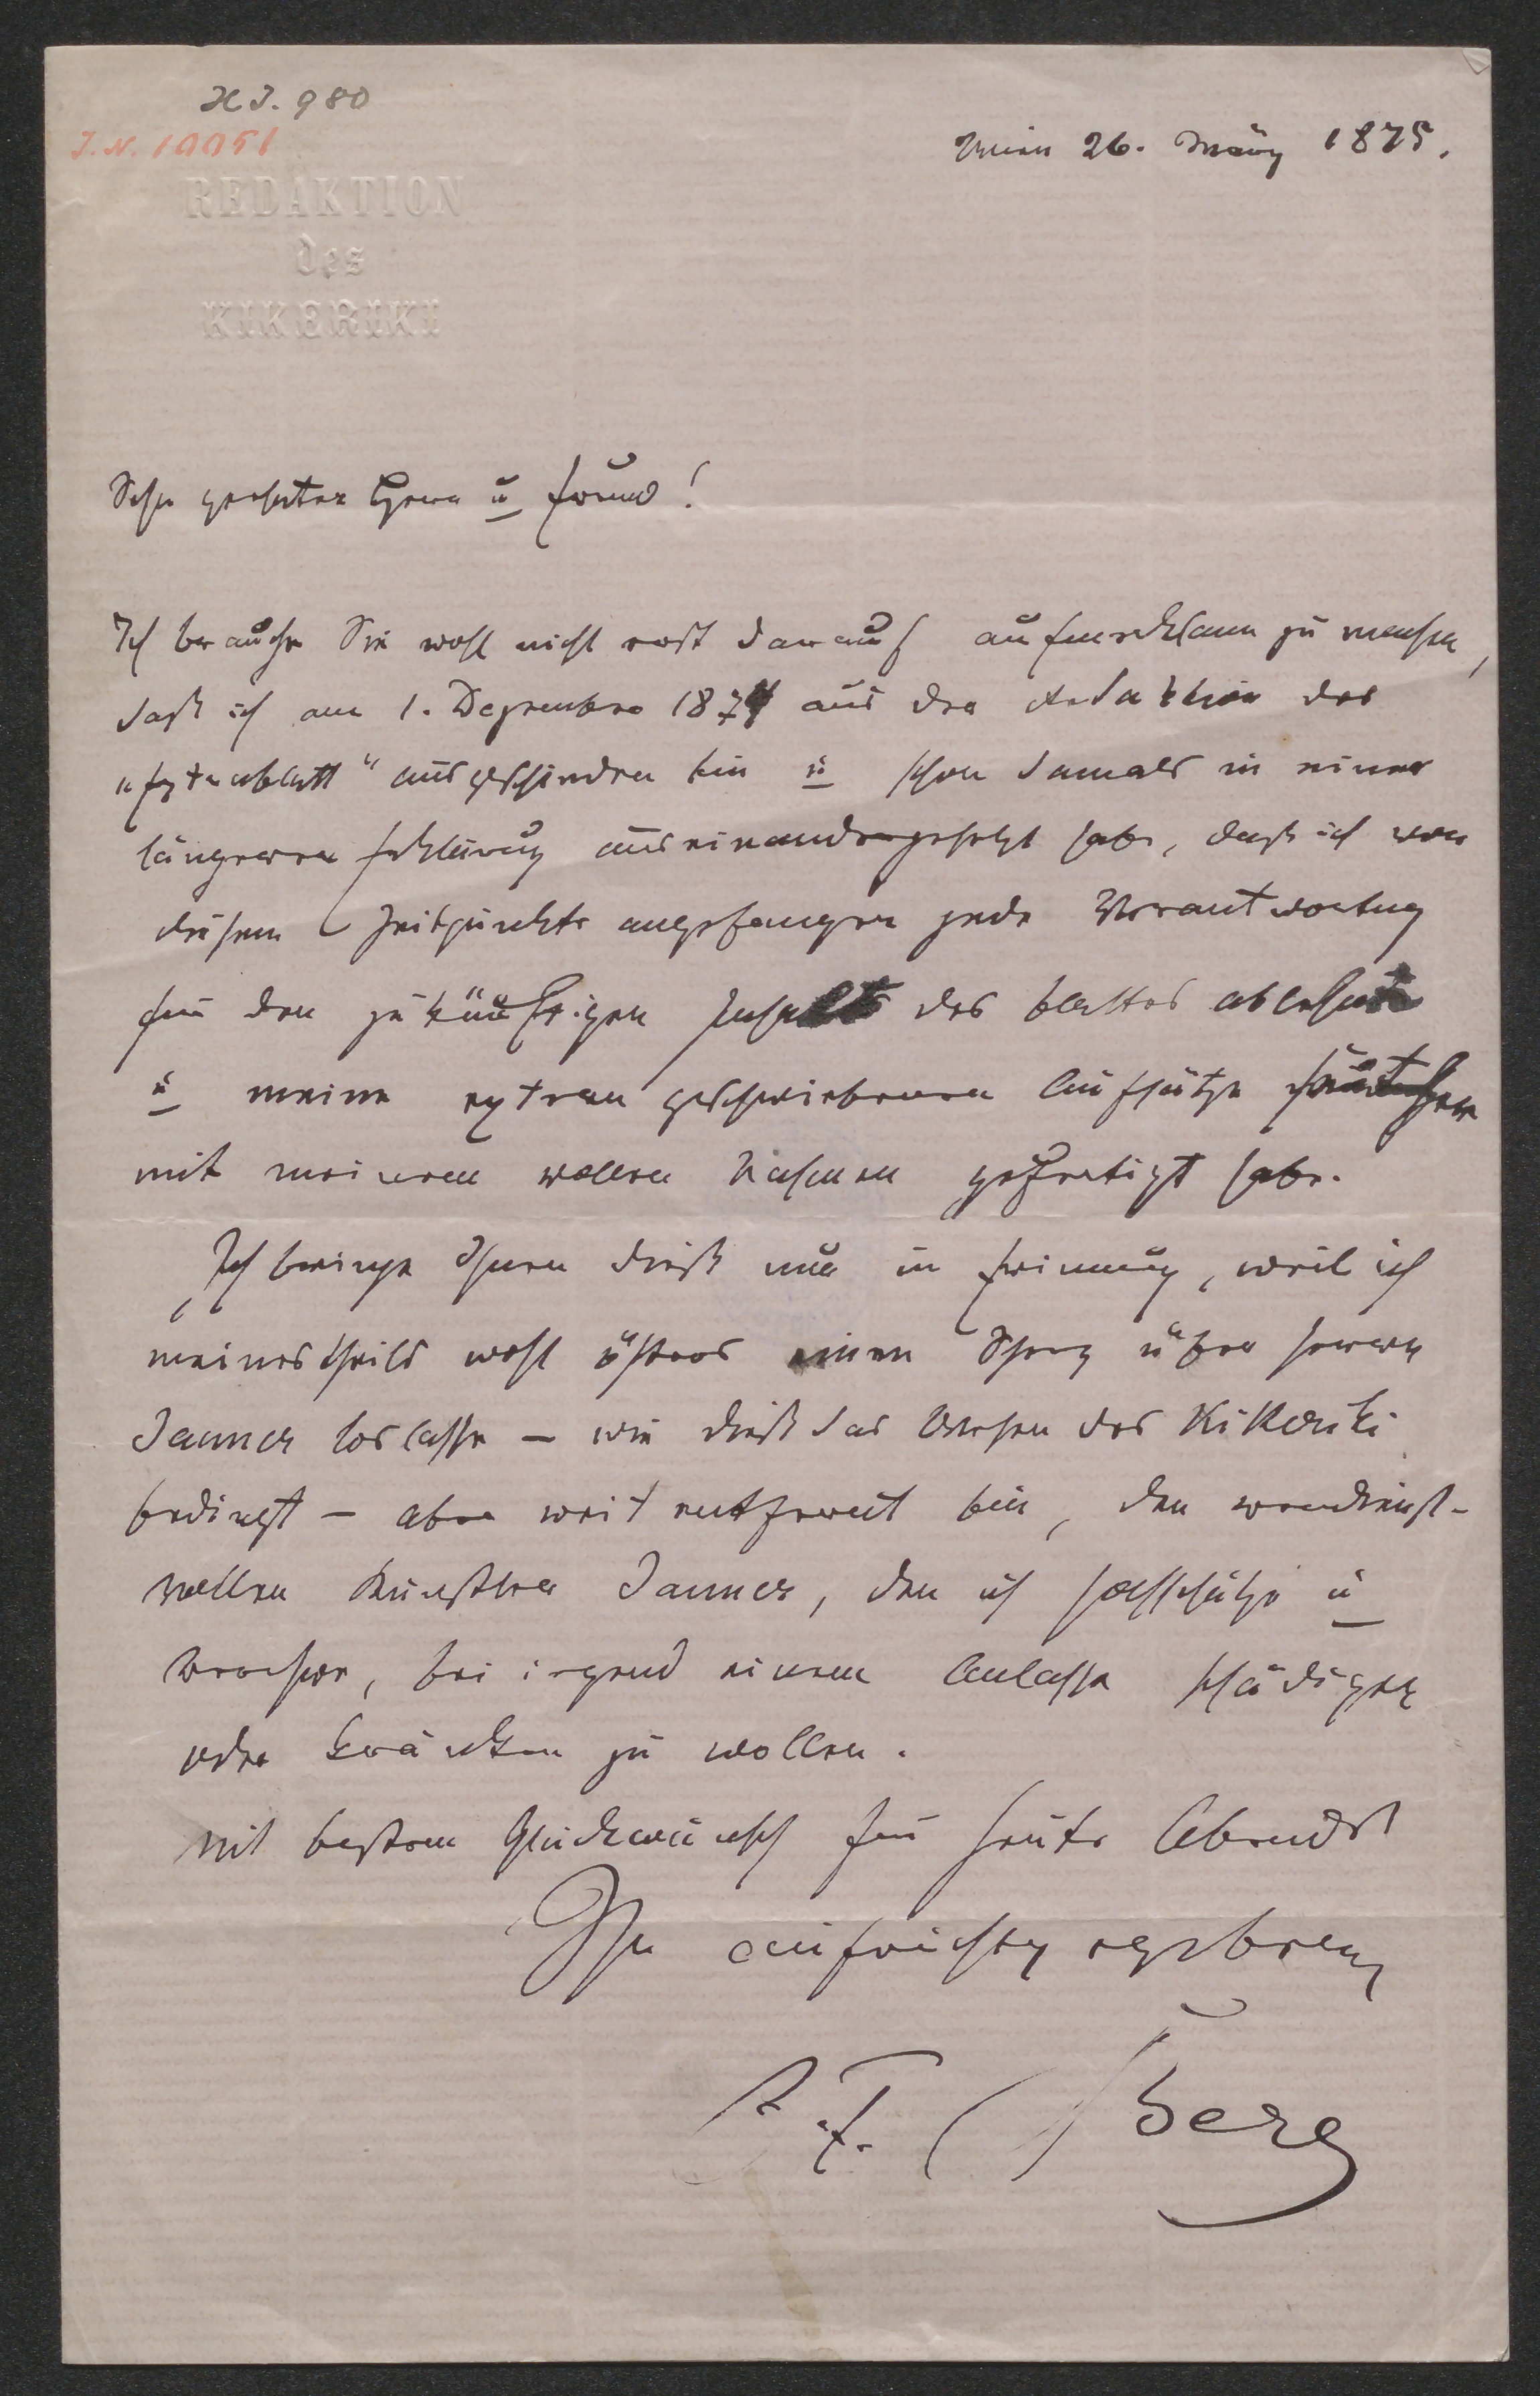 H.I. 980
I.N. 10051
REDAKTION
des
KIKERIKI
Wien 26. März 1875.
Sehr geehrter Herr u Freund!
Ich brauche Sie wohl nicht erst darauf aufmerksam zu machen,
daß ich am 1. Dezember 1874 aus der Redaktion des
„Extrablatt" ausgeschieden bin u schon damals in einer
längeren Erklärung auseinandergesetzt habe, daß ich von
diesem Zeitpunkte angefangen jede Verantwortung
für den zukünftigen Inhalt des Blattes ablehnte
u meine extra geschriebenen Aufsätze
mit meinem vollen Nahmen gefertigt habe.
Ich bringe Ihnen dieß nur in Erinnerung, weil ich
meinestheils wohl öfters einen Scherz über Herrn
Jauner loslasse – wie dieß das Wesen des Kikeriki
bedingt – aber weit entfernt bin, den verdienst-
vollen Künstler Jauner, den ich hochschätze u
verehre, bei irgend einem Anlasse schädigen
oder kränken zu wollen.
Mit bestem Glückwunsch für heute Abends
Ihr aufrichtig ergebener
O. F. Berg